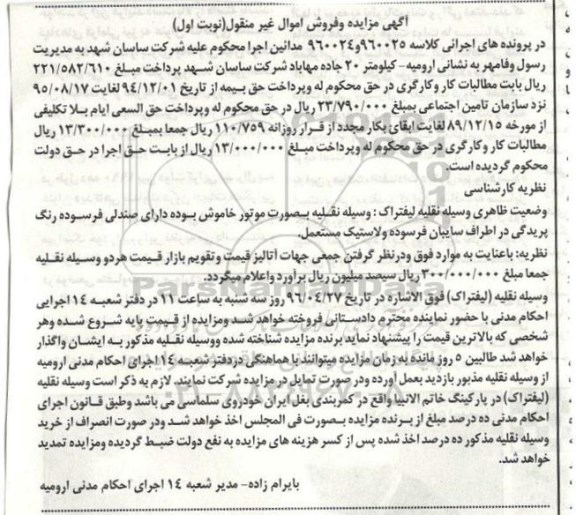 آگهی مزایده وفروش اموال غیر منقول(نوبت اول)
در پرونده های اجرائی کلاسه ۹۶۰۰۲۵و۹۶۰۰۲۴ مدائین اجرا محکوم علیه شرکت ساسان شهد به مدیریت
رسول وفامهر به نشانی ارومیه- کیلومتر ۲۰ جاده مهاباد شرکت ساسان شهد پرداخت مبلغ ۲۲۱/۵۸۲/۶۱۰
ریال بابت مطالبات کار وکارگری در حق محکوم له وپرداخت حق بیمه از تاریخ ۹۴/۱۲/۰۱ لغایت ۹۵/۰۸/۱۷
نزد سازمان تامین اجتماعی بمبلغ ۲۳/۷۹۰/۰۰۰ ریال در حق محکوم له وپرداخت حق السعی ایام بلا تکلیفی
از مورخه ۸۹/۱۲/۱۵ لغایت ابقای بکار مجدد از قرار روزانه ۱۱۰/۷۵۹ ریال جمعا بمبلغ ۱۳/۳۰۰/۰۰۰ ریال
مطالبات کار وکارگری در حق محکوم له وپرداخت مبلغ ۱۳/۰۰۰/۰۰۰ ریال از بابت حق اجرا در حق دولت
محکوم گردیده است.
نظریه کارشناسی
وضعیت ظاهری وسیله نقلیه لیفتراک : وسیله نقلیه بصورت موتور خاموش بوده دارای صندلی فرسوده رنگ
پریدگی در اطراف سایبان فرسوده ولاستیک مستعمل.
نظریه: باعنایت به موارد فوق ودرنظر گرفتن جمعی جهات آنالیز قیمت و تقویم بازار قیمت هردو وسیله نقلیه
جمعا مبلغ ۳۰۰/۰۰۰/۰۰۰ ریال سیصد میلیون ریال برآورد واعلام میگردد.
وسیله نقلیه (لیفتراک) فوق الاشاره در تاریخ ۹۶/۰۴/۲۷ روز سه شنبه به ساعت ۱۱ در دفتر شعبه ۱۴ اجرایی
احکام مدنی با حضور نماینده محترم دادستانی فروخته خواهد شد ومزایده از قیمت پایه شروع شده وهر
شخصی که بالاترین قیمت را پیشنهاد نماید برنده مزایده شناخته شده ووسیله نقلیه مذکور به ایشان واگذار
خواهد شد طالبین ۵ روز مانده به زمان مزایده میتوانند با هماهنگی دردفتر شعبه ۱۴ اجرای احکام مدنی ارومیه
از وسیله نقلیه مذبور بازدید بعمل آورده ودر صورت تمایل در مزایده شرکت نمایند. لازم به ذکر است وسیله نقلیه
(لیفتراک) در پارکینگ خاتم الانبیا واقع در کمربندی بغل ایران خودروی سلماسی می باشد وطبق قانون اجرای
احکام مدنی ده درصد مبلغ از برنده مزایده بصورت فی المجلس اخذ خواهد شد ودر صورت انصراف از خرید
وسیله نقلیه مذکور ده درصد اخذ شده پس از کسر هزینه های مزایده به نفع دولت ضبط گردیده ومزایده تمدید
خواهد شد.
بایرام زاده- مدیر شعبه ۱۴ اجرای احکام مدنی ارومیه
ParsNamadData